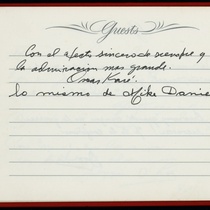 Guests
Con el afecto sincero de siempre y
la admiracion mas grande.
Omar Karé.
lo mismo de Mike Danie